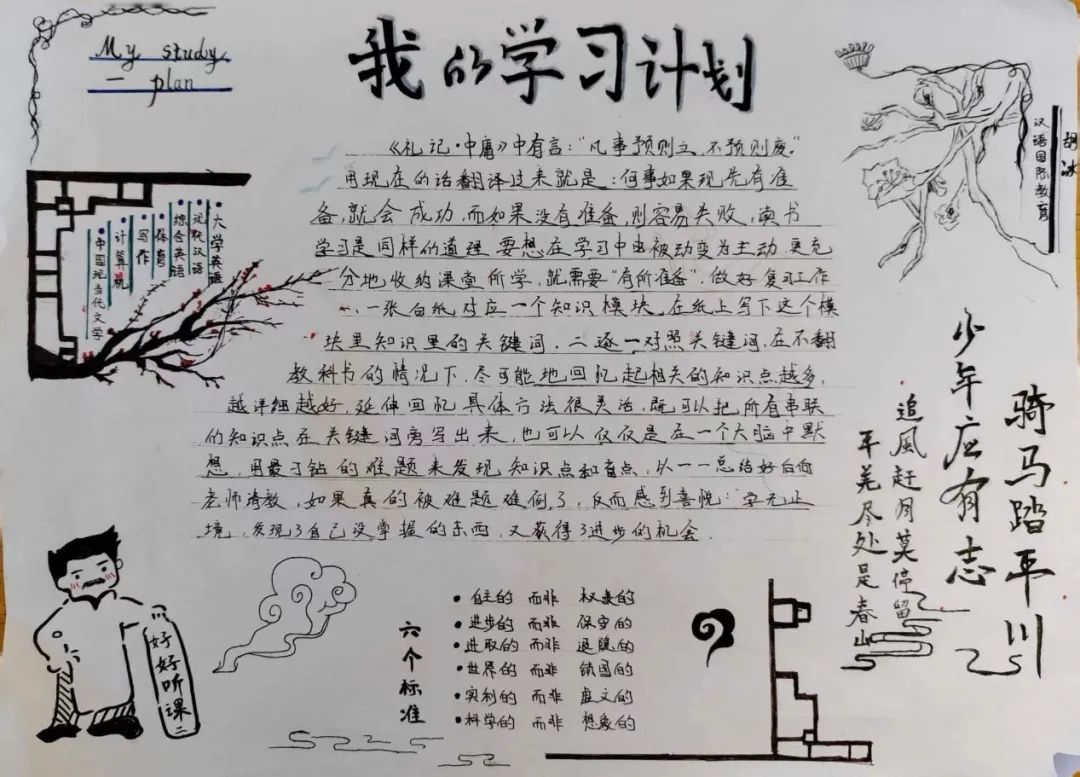 我的学习计划
My study
plan
《礼记·中庸》中有言:“凡事预则立,不预则废。”
用现在的话翻译过来就是:何事如果现先有准
备,就会成功,而如果没有准备,则容易失败,读书
学习是同样的道理,要想在学习中由被动变为主动,更充
分地收纳课堂所学,就需要“有所准备”,做好复习工作
一、一张白纸对应一个知识模块,在纸上写下这个模
块里知识里的关键词.二逐一对照关键词,在不翻
教科书的情况下,尽可能地回忆起相关的知识点越多,
越详细越好,延伸回忆具体方法很灵活,既可以把所有串联
的知识点在关键词旁写出来,也可以仅仅是在一个大脑中默
想,用最刁钻的难题来发现知识点和盲点,从一一总结好后向
老师请教,如果真的被难题难倒了,反而感到喜悦:“学无止
境,发现了自己没掌握的东西,又获得了进步的机会.
大学英语
现代汉语
综合英语
体育
写作
计算机
中国现当代文学
胡冰
汉语国际教育
骑马踏平川
少年应有志
追風赶月莫停留
平芜尽处是春山
好好听课
六个标准
自主的 而非 奴隶的
进步的 而非 保守的
进取的 而非 退隐的
世界的 而非 锁国的
实利的 而非 虚文的
科学的 而非 想象的